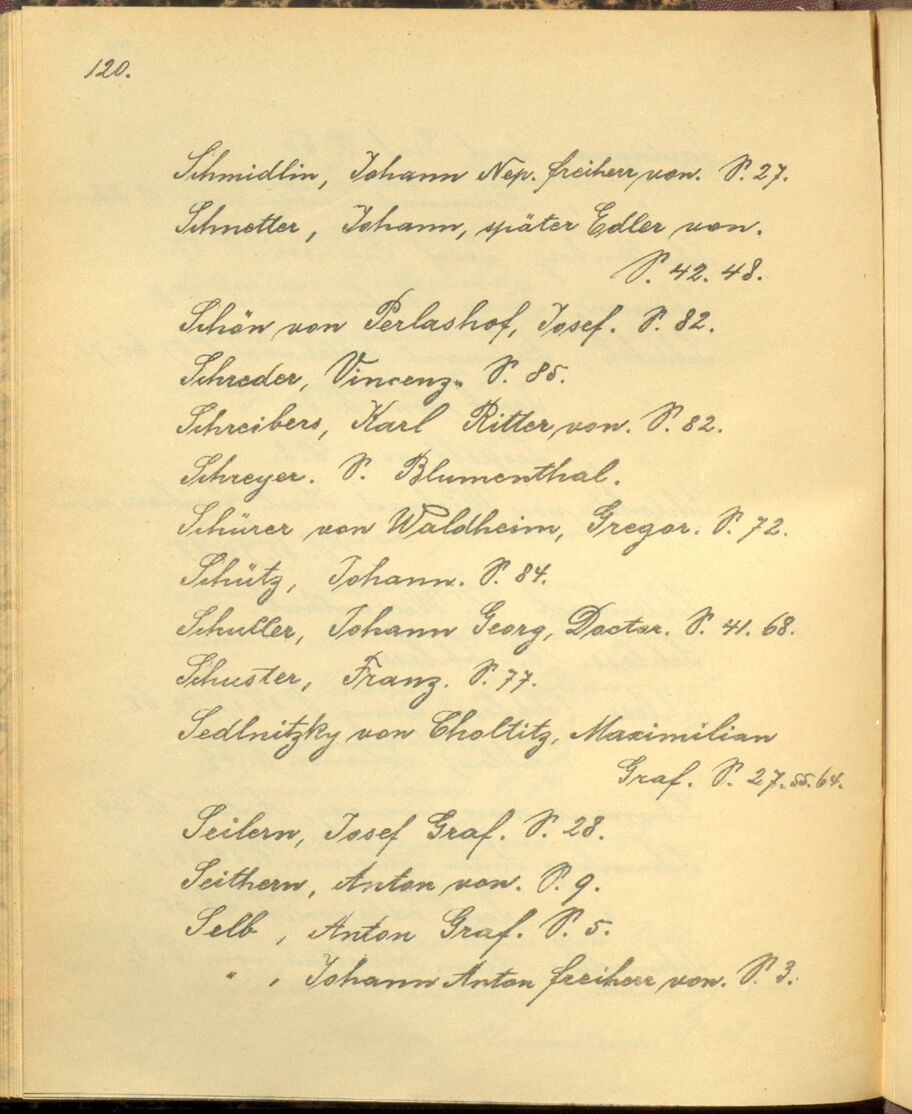 120.
Schmidlin, Johann Nep. freiherr von. S. 27.
Schnetter, Johann, später Edler von.
S. 42. 48.
Schön von Perlashof, Josef. S. 82.
Schreder, Vincenz. S. 85.
Schreibers, Karl Ritter von. S. 82.
Schreyer. S. Blumenthal.
Schürer von Waldheim, Gregor. S. 72.
Schütz, Johann. S. 84.
Schuller, Johann Georg, Doctor. S. 41. 68.
Schuster, Franz. S. 77.
Sedlnitzky von Choltitz, Maximilian
Graf. S. 27. 55. 64.
Seilern, Josef Graf. S. 28.
Seithern, Anton von. S. 9.
Selb, Anton Graf. S. 5.
" , Johann Anton freiherr von. S. 3.